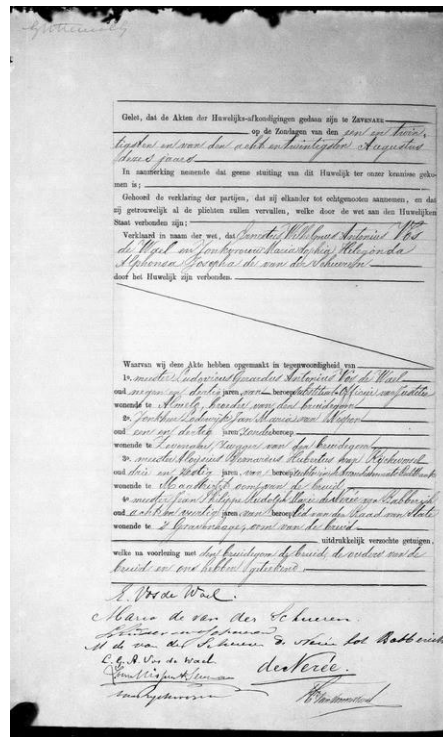 Gelet, dat de Akten der Huwelijks-afkondigingen gedaan zijn te ZEVENAAR
op de Zondagen van den een en twin-
tigsten en van den acht en twintigsten Augustus
dezes jaars
In aanmerking nemende dat geene stuiting van dit Huwelijk ter onzer kennisse geko-
men is;
Gehoord de verklaring der partijen, dat zij elkander tot echtgenooten aannemen, en dat
zij getrouwelijk al de plichten zullen vervullen, welke door de wet aan den Huwelijken
Staat verbonden zijn;
Verklaard in naam der wet, dat Ernestus Wilhelmus Antonius Vos
de Wael en Jonkvrouw Maria Sophia
Alphonsa Josepha de van der Schueren
door het Huwelijk zijn verbonden.
Waarvan wij deze Akte hebben opgemaakt in tegenwoordigheid van
1o. meester Ludovicus Gerardus Antonius Vos de Wael
oud negen en dertig jaren, van beroep substituut Officier van Justitie
wonende te Almelo, broeder van den bruidegom
2o. Jonkheer Lodewijk Jan Maria van
oud een en dertig jaren, zonder beroep
wonende te Zevenaar, zwager van den bruidegom
3o. meester Aloysius Bernardus Hubertus van Rijckevorsel
oud drie en jaren, van beroep
wonende te Maastricht, oom van de bruid
4o. meester Jean Philippe Rudolph Marie de Nerée van Babberich
oud acht en veertig jaren, van beroep Lid van den Raad van State
wonende te 's Gravenhage, oom van de bruid
uitdrukkelijk verzochte getuigen,
welke na voorlezing met den bruidegom, de bruid, de ouders van de
bruid en ons hebben geteekend.
E. Vos de Wael.
Maria de van der Schueren.
M de van der Schueren de Nerée tot Babberich
L. G. A. Vos de Wael.
de Nerée.